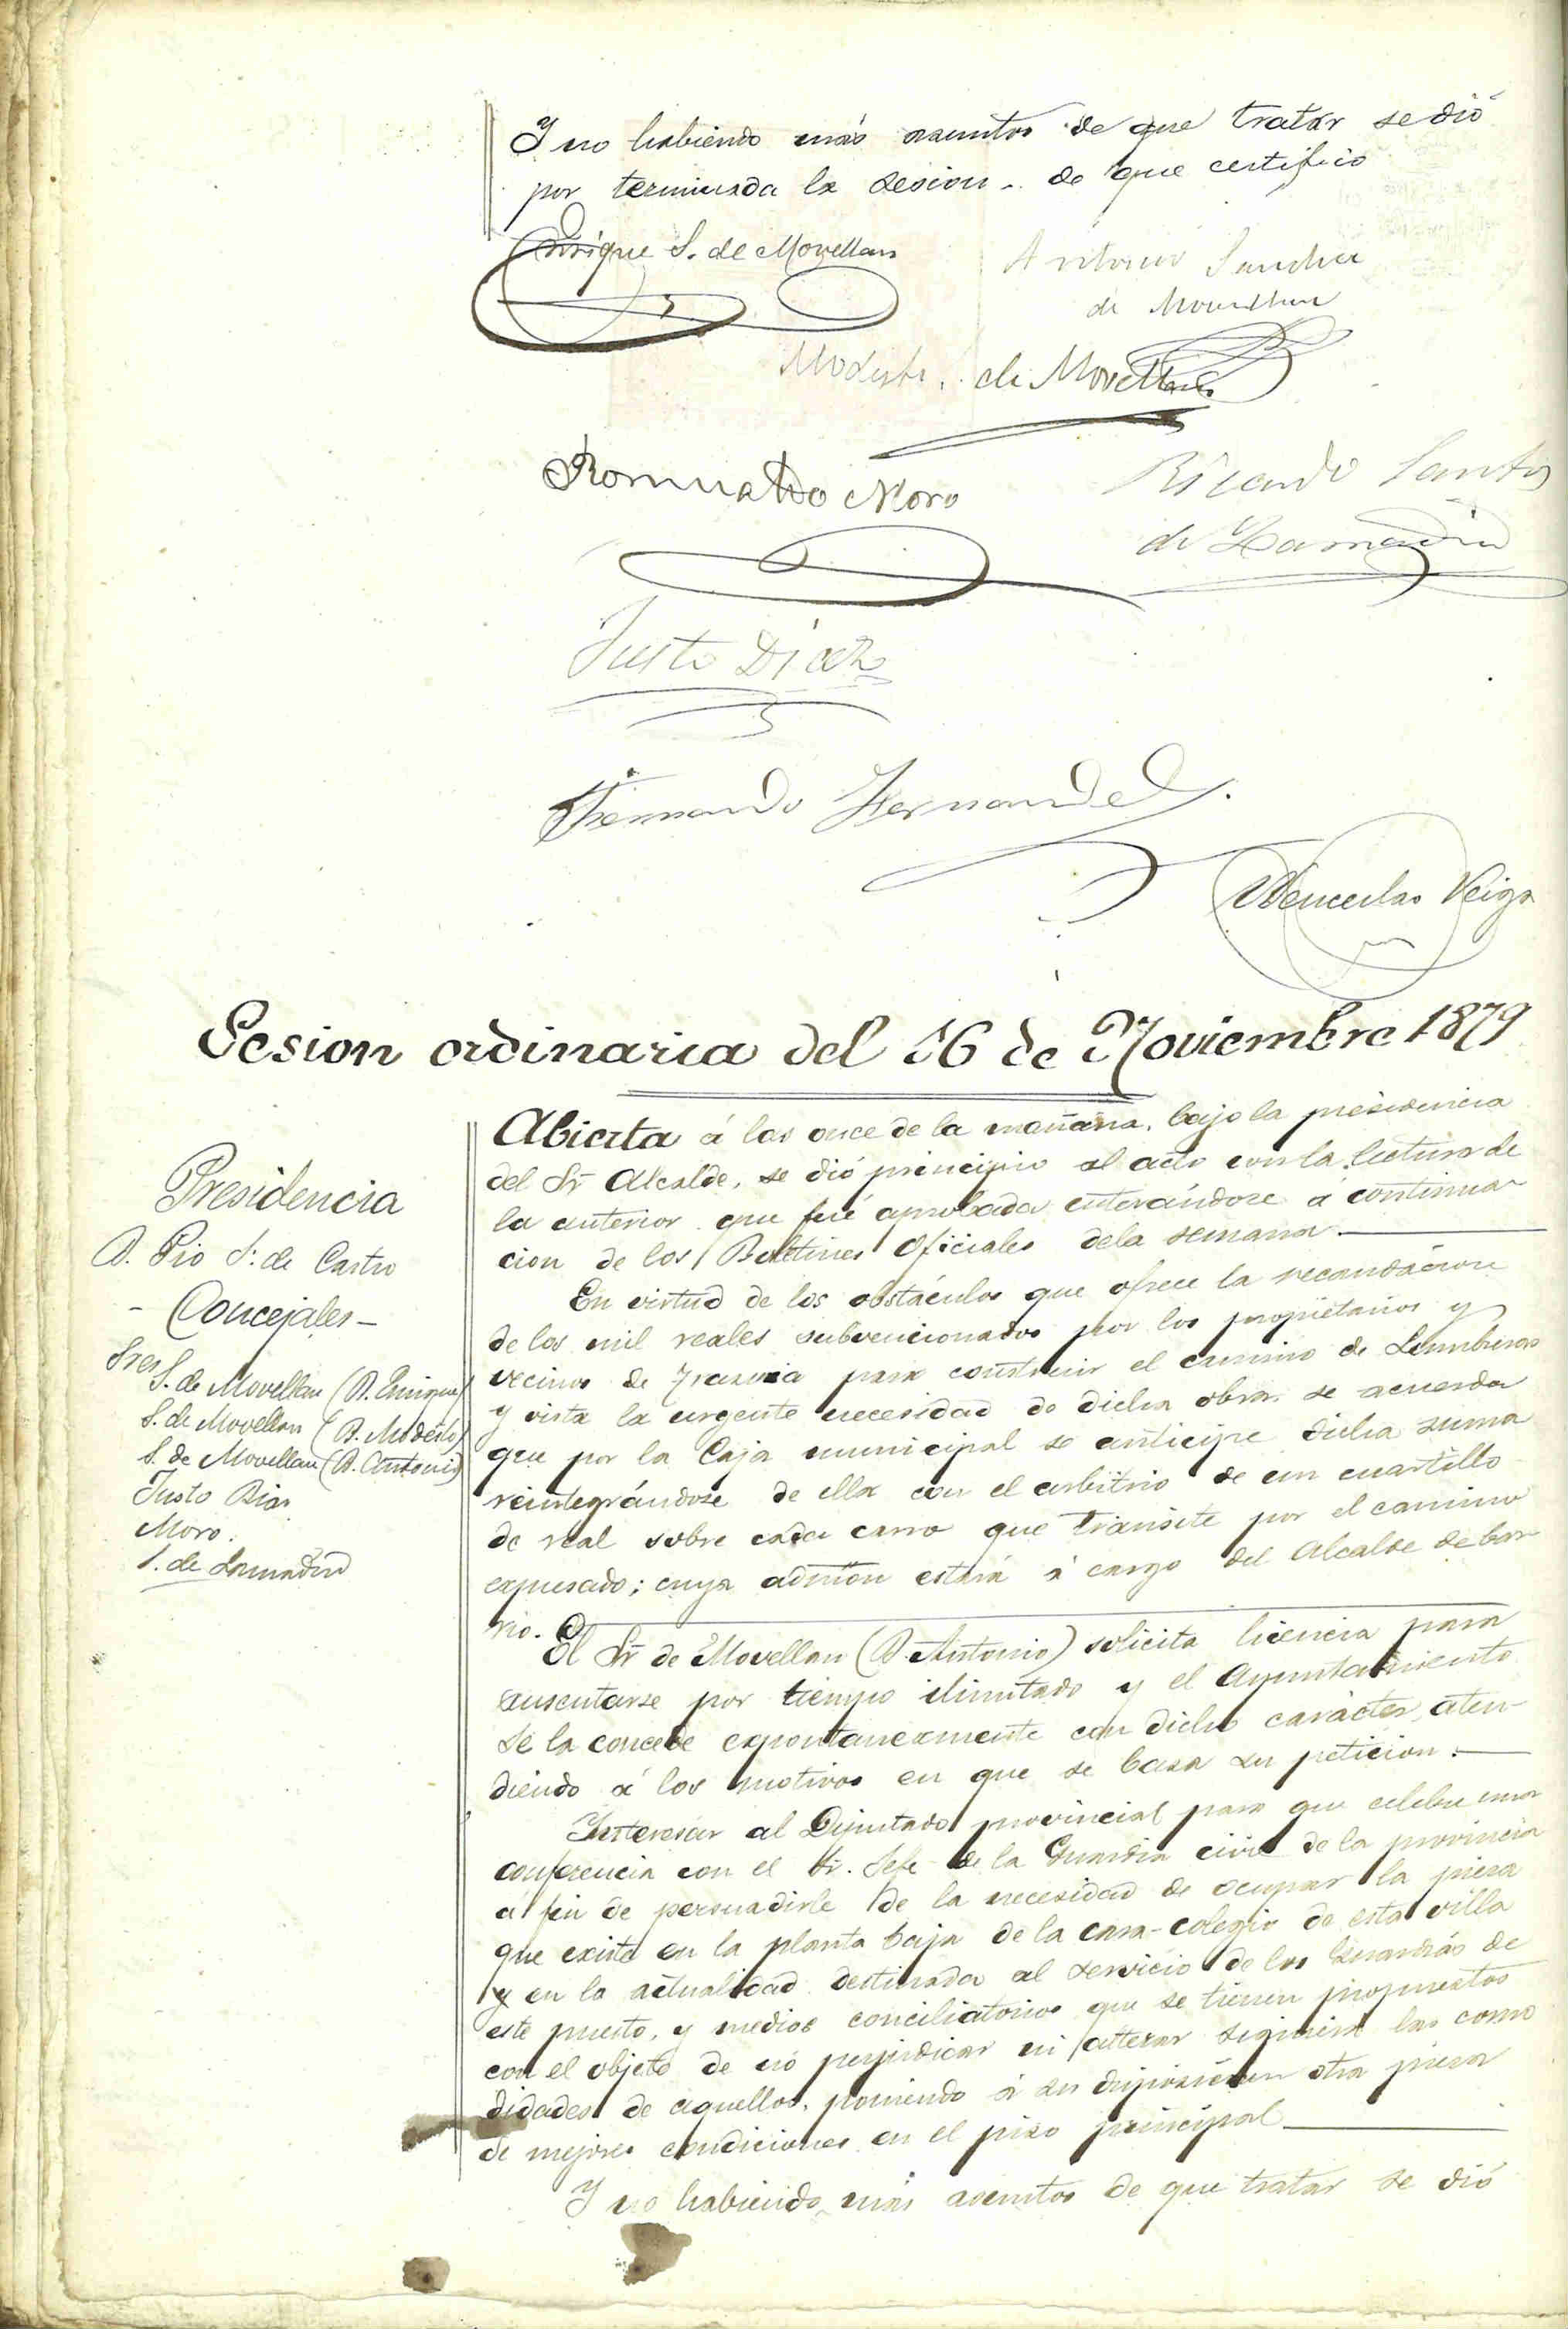 Y no habiendo más asuntos de que tratar se dió
por terminada la sesion de que certifico
Enrique S. de Movellan
Antonio Sanchez
de Movellan
Modesto de Movellan
Romualdo Moro
Ricardo Santos
de Lamadrid
Justo Diaz
Fernando Fernandez
Wenceslao Veiga
Sesion ordinaria del 16 de Noviembre 1879
Presidencia
D. Pio S. de Castro
- Concejales -
Sres S. de Movellan (D. Enrique)
S. de Movellan (D. Modesto)
S. de Movellan (D. Antonio)
Justo Diaz
Moro.
S. de Lamadrid
Abierta á las once de la mañana, bajo la presidencia
del Sr Alcalde, se dió principio al acto con la lectura de
la anterior que fué aprobada enterándose á continua-
cion de los Boletines Oficiales dela semana.
En virtud de los obstáculos que ofrece la recaudacion
de los mil reales subvencionados por los propietarios y
vecinos de para construir el camino de Lumbreras
y vista la urgente necesidad de dicha obra se acuerda
que por la Caja municipal se anticipe dicha suma
reintegrándose de ella con el arbitrio de un cuartillo
de real sobre cada carro que transite por el camino
expresado; cuya admon estará á cargo del Alcalde de bar-
rio.
El Sr de Movellan (D. Antonio) solicita licencia para
ausentarse por tiempo ilimitado y el Ayuntamiento
se la concede expontaneamente con dicho carácter, aten-
diendo á los motivos en que se basa su peticion.
Interesar al Diputado provincial para que celebre una
conferencia con el Sr. Jefe de la Guardia civil de la provincia
á fin de persuadirle de la necesidad de ocupar la pieza
que existe en la planta baja de la casa-colegio de esta villa
y en la actualidad destinada al servicio de los Guardias de
este puesto, y medios conciliatorios que se tienen propuestos
con el objeto de no perjudicar ni alterar siquiera las como
didades de aquellos, poniendo á su disposicion otra pieza
de mejores condiciones en el piso principal
Y no habiendo más asuntos de que tratar se dió